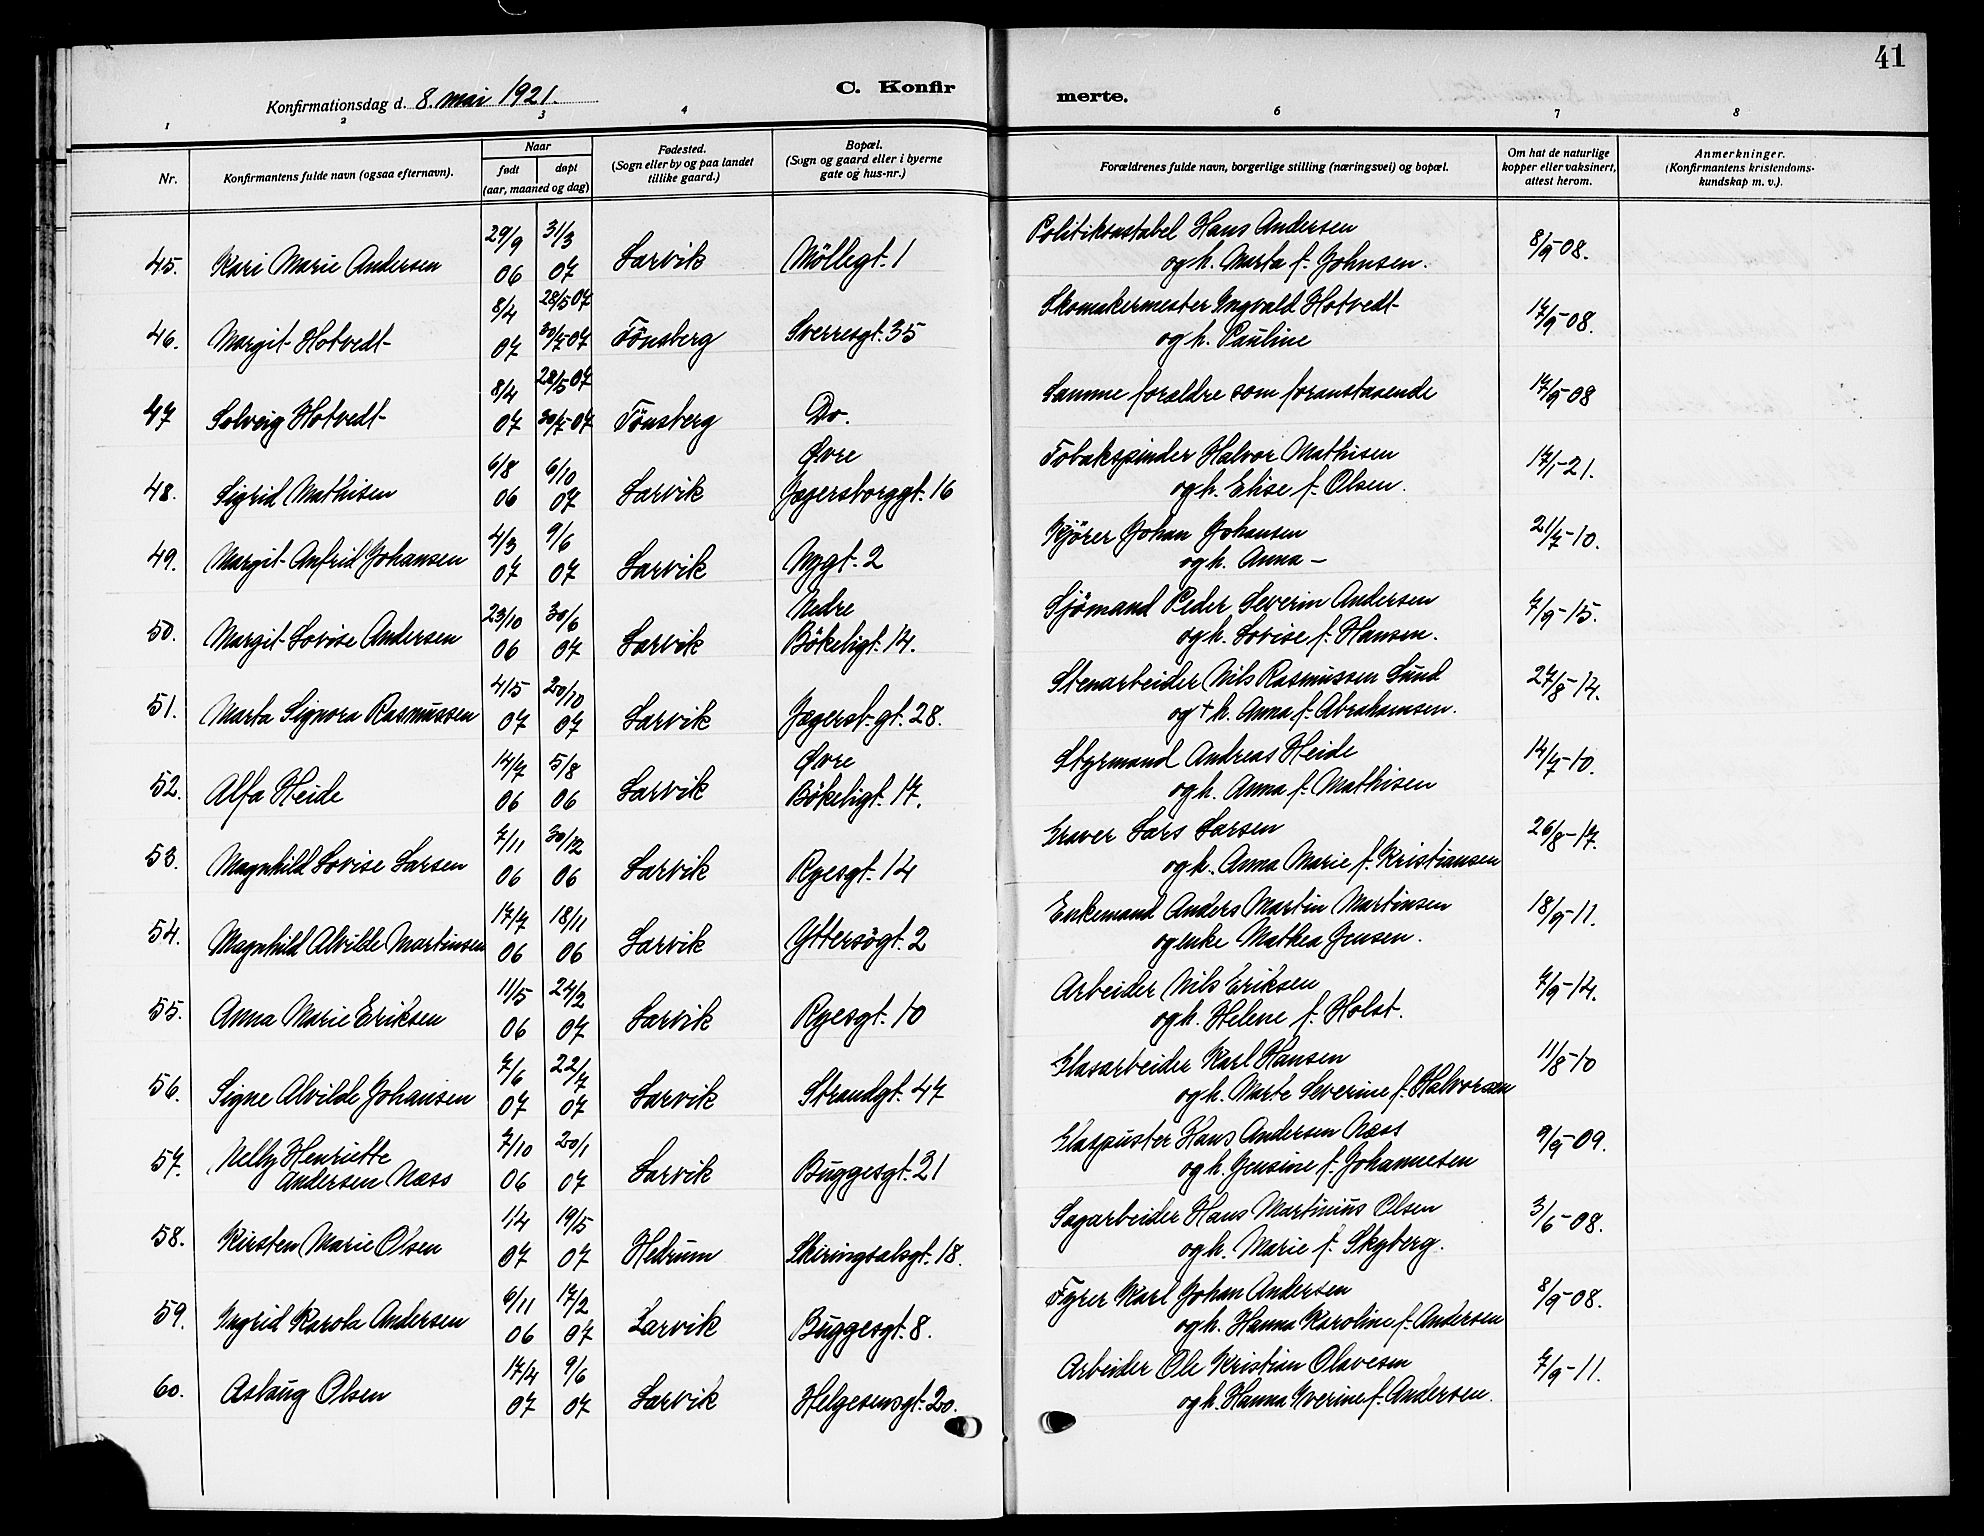 41
Konfirmationsdag d. 8. mai 1921.
C. Konfir
merte.
1 2 3 4 6 7 8
Nr.
Konfirmantens fulde navn (ogsaa efternavn).
Naar
født døpt
(aar, maaned og dag)
Fødested.
(Sogn eller by og paa landet
tillike gaard.)
Bopæl.
(Sogn og gaard eller i byerne
gate og hus-nr.)
Forældrenes fulde navn, borgerlige stilling (næringsvei) og bopæl.
Om hat de naturlige
kopper eller vaksinert,
attest herom.
Anmerkninger.
(Konfirmantens kristendoms-
kundskap m. v.).
29/9 31/3 Politikonstabel Hans Andersen
45. Kari Marie Andersen 06 07 Larvik Möllegt. 1 og h. Marta f. Johnsen. 8/9-08.
8/4 28/5 07 Skomakermester Ingvald Hotvedt
46. Margit Hotvedt 07 30/7-07 Tönsberg Sverresgt. 35 og h. Pauline 17/9-08.
8/4 28/5 07
47 Solveig Hotvedt 07 30/7-07 Tönsberg Do. Samme forældre som foranstaaende 17/9-08
6/8 6/10 Øvre Tobakspinder Halvor Mathisen
48. Sigrid Mathisen 06 07 Larvik Jegersborggt. 16 og h. Elise f. Olsen. 17/1-21.
4/3 9/6 Kjörer Johan Johansen
49. Margit Anfrid Johansen 07 07 Larvik Nygt. 2 og h. Anna — 21/7-10.
23/10 30/6 Nedre Sjömand Peder Severin Andersen
50. Margit Lovise Andersen 06 07 Larvik Bökeligt. 14. og h. Lovise f. Hansen. 7/9-15.
4/5 20/10 Stenarbeider Nils Rasmussen Lund
51. Marta Signora Rasmussen 07 07 Larvik Jegersb-gt. 28. og + h. Anna f. Abrahamsen. 27/8-14.
14/7 5/8 Øvre Styrmand Andreas Heide
52. Alfa Heide 06 06 Larvik Bökeligt. 17. og h. Anna f. Mathisen 14/7-10.
7/11 30/12 Graver Lars Larsen
53. Magnhild Lovise Larsen 06 06 Larvik Ryesgt. 14 og h. Anna Marie f. Kristiansen 26/8-17.
17/7 18/11 Enkemand Anders Martin Martinsen
54. Magnhild Alvilde Martinsen 06 06 Larvik Yttersögt. 2 og enke Mathea Jensen. 18/9-11.
11/5 24/2 Arbeider Nils Eriksen
55. Anna Marie Eriksen 06 07 Larvik Ryesgt. 10 og h. Helene f. Holst. 7/9-14.
7/6 22/7 Glasarbeider Karl Hansen
56. Signe Alvilde Johansen 07 07 Larvik Strandgt. 47 og h. Marte Severine f. Halvorsen 11/8-10
7/10 20/1 Glaspuster Hans Andersen Næss
57. Nelly Henriette
Andersen Næss 06 07 Larvik Buggesgt. 21 og h. Jensine f. Johannesen 9/9-09.
1/4 19/5 Sagarbeider Hans Martinius Olsen
58. Kirsten Marie Olsen 07 07 Hedrum Skiringsalsgt. 18. og h. Marie f. Skyberg. 3/6-08.
6/11 17/2 Fyrer Karl Johan Andersen
59. Ingrid Karola Andersen 06 07 Larvik Buggesgt. 8. og h. Hanna Karoline f. Andersen 8/9-08.
17/4 9/6 Arbeider Ole Kristian Olavesen
60. Aslaug Olsen 07 07 Larvik Helgesensgt. 20. og h. Hanna Iverine f. Andersen. 7/9-11.